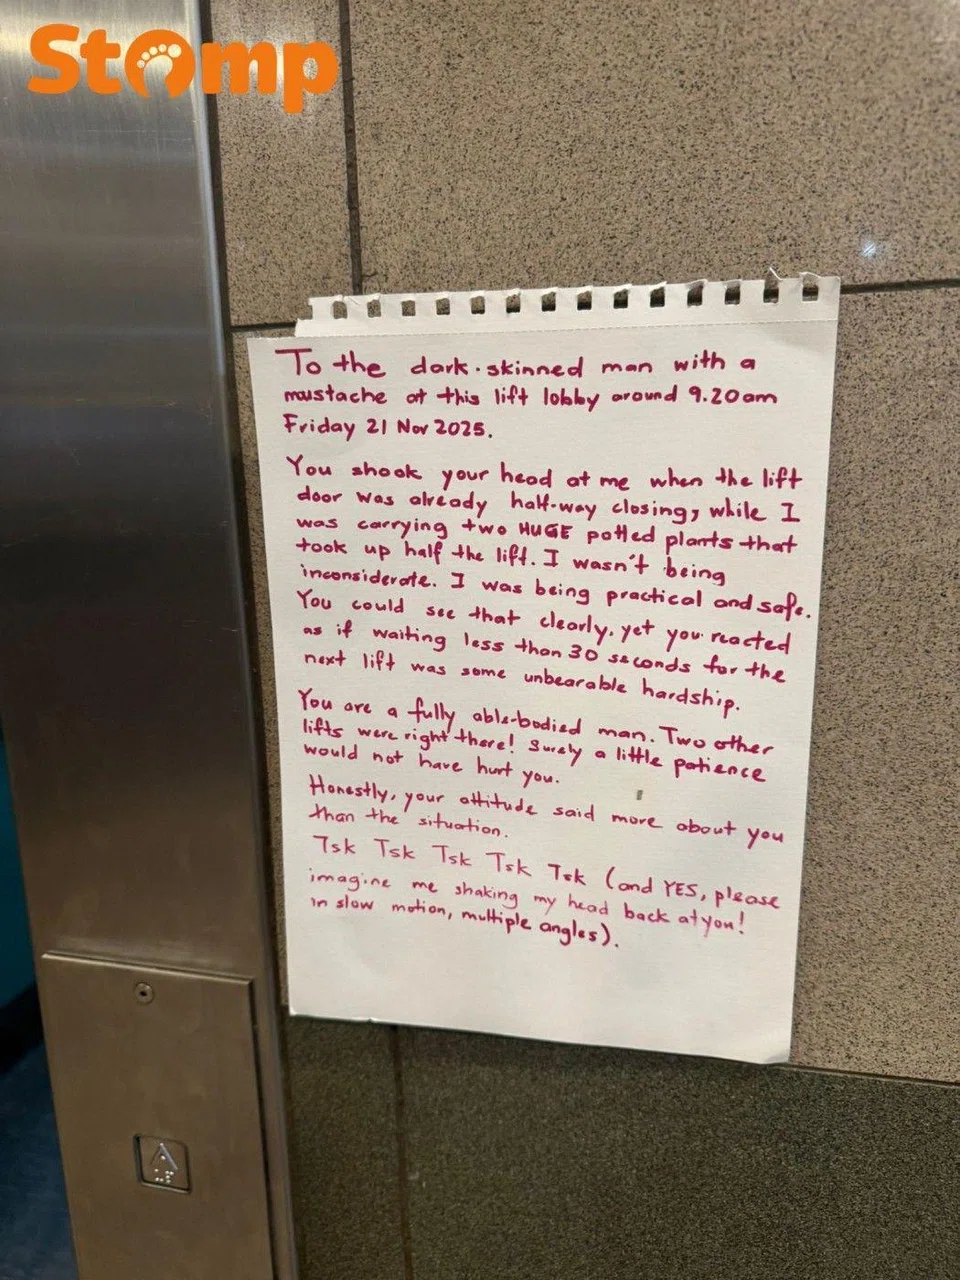 Stomp
To the dark-skinned man with a
mustache at this lift lobby around 9.20am
Friday 21 Nov 2025.
You shook your head at me when the lift
door was already half-way closing, while I
was carrying two HUGE potted plants that
took up half the lift. I wasn't being
inconsiderate. I was being practical and safe.
You could see that clearly, yet you reacted
as if waiting less than 30 seconds for the
next lift was some unbearable hardship.
You are a fully able-bodied man. Two other
lifts were right there! Surely a little patience
would not have hurt you.
Honestly, your attitude said more about you
than the situation.
Tsk Tsk Tsk Tsk Tsk (and YES, please
imagine me shaking my head back at you!
in slow motion, multiple angles).